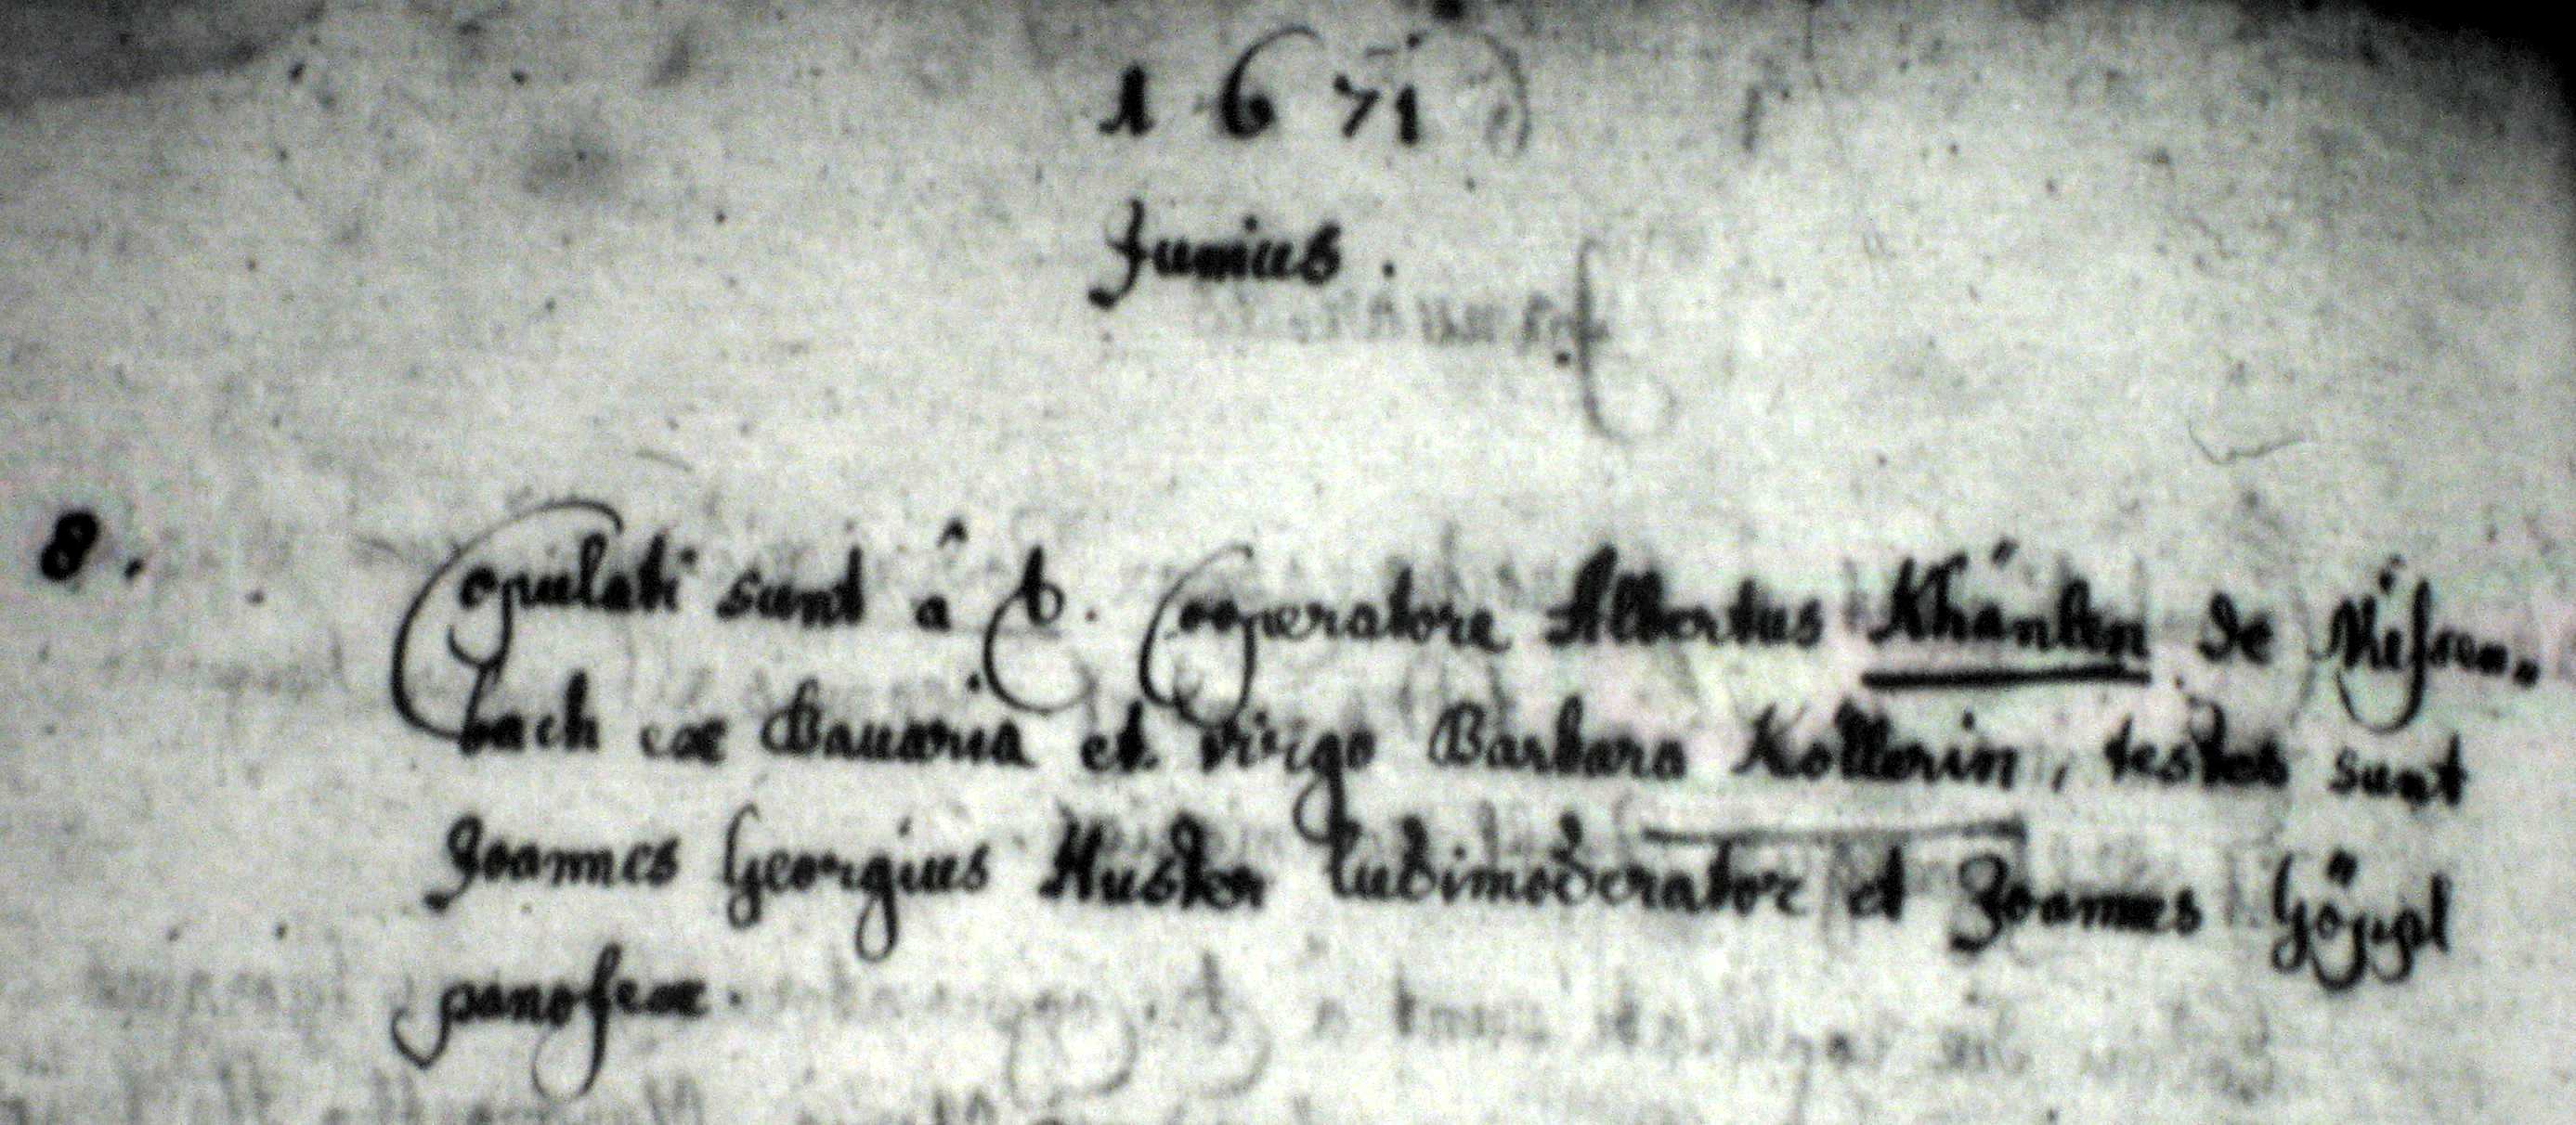 1671
Junius.
8. Copulati sunt â D. Cooperatore Albertus Khänlen de Nissen„
bach ex Bauaria et virgo Barbara Kollerin, testes sunt
Joannes Georgius Huster ludimoderator et Joannes Gözgl
panofex.